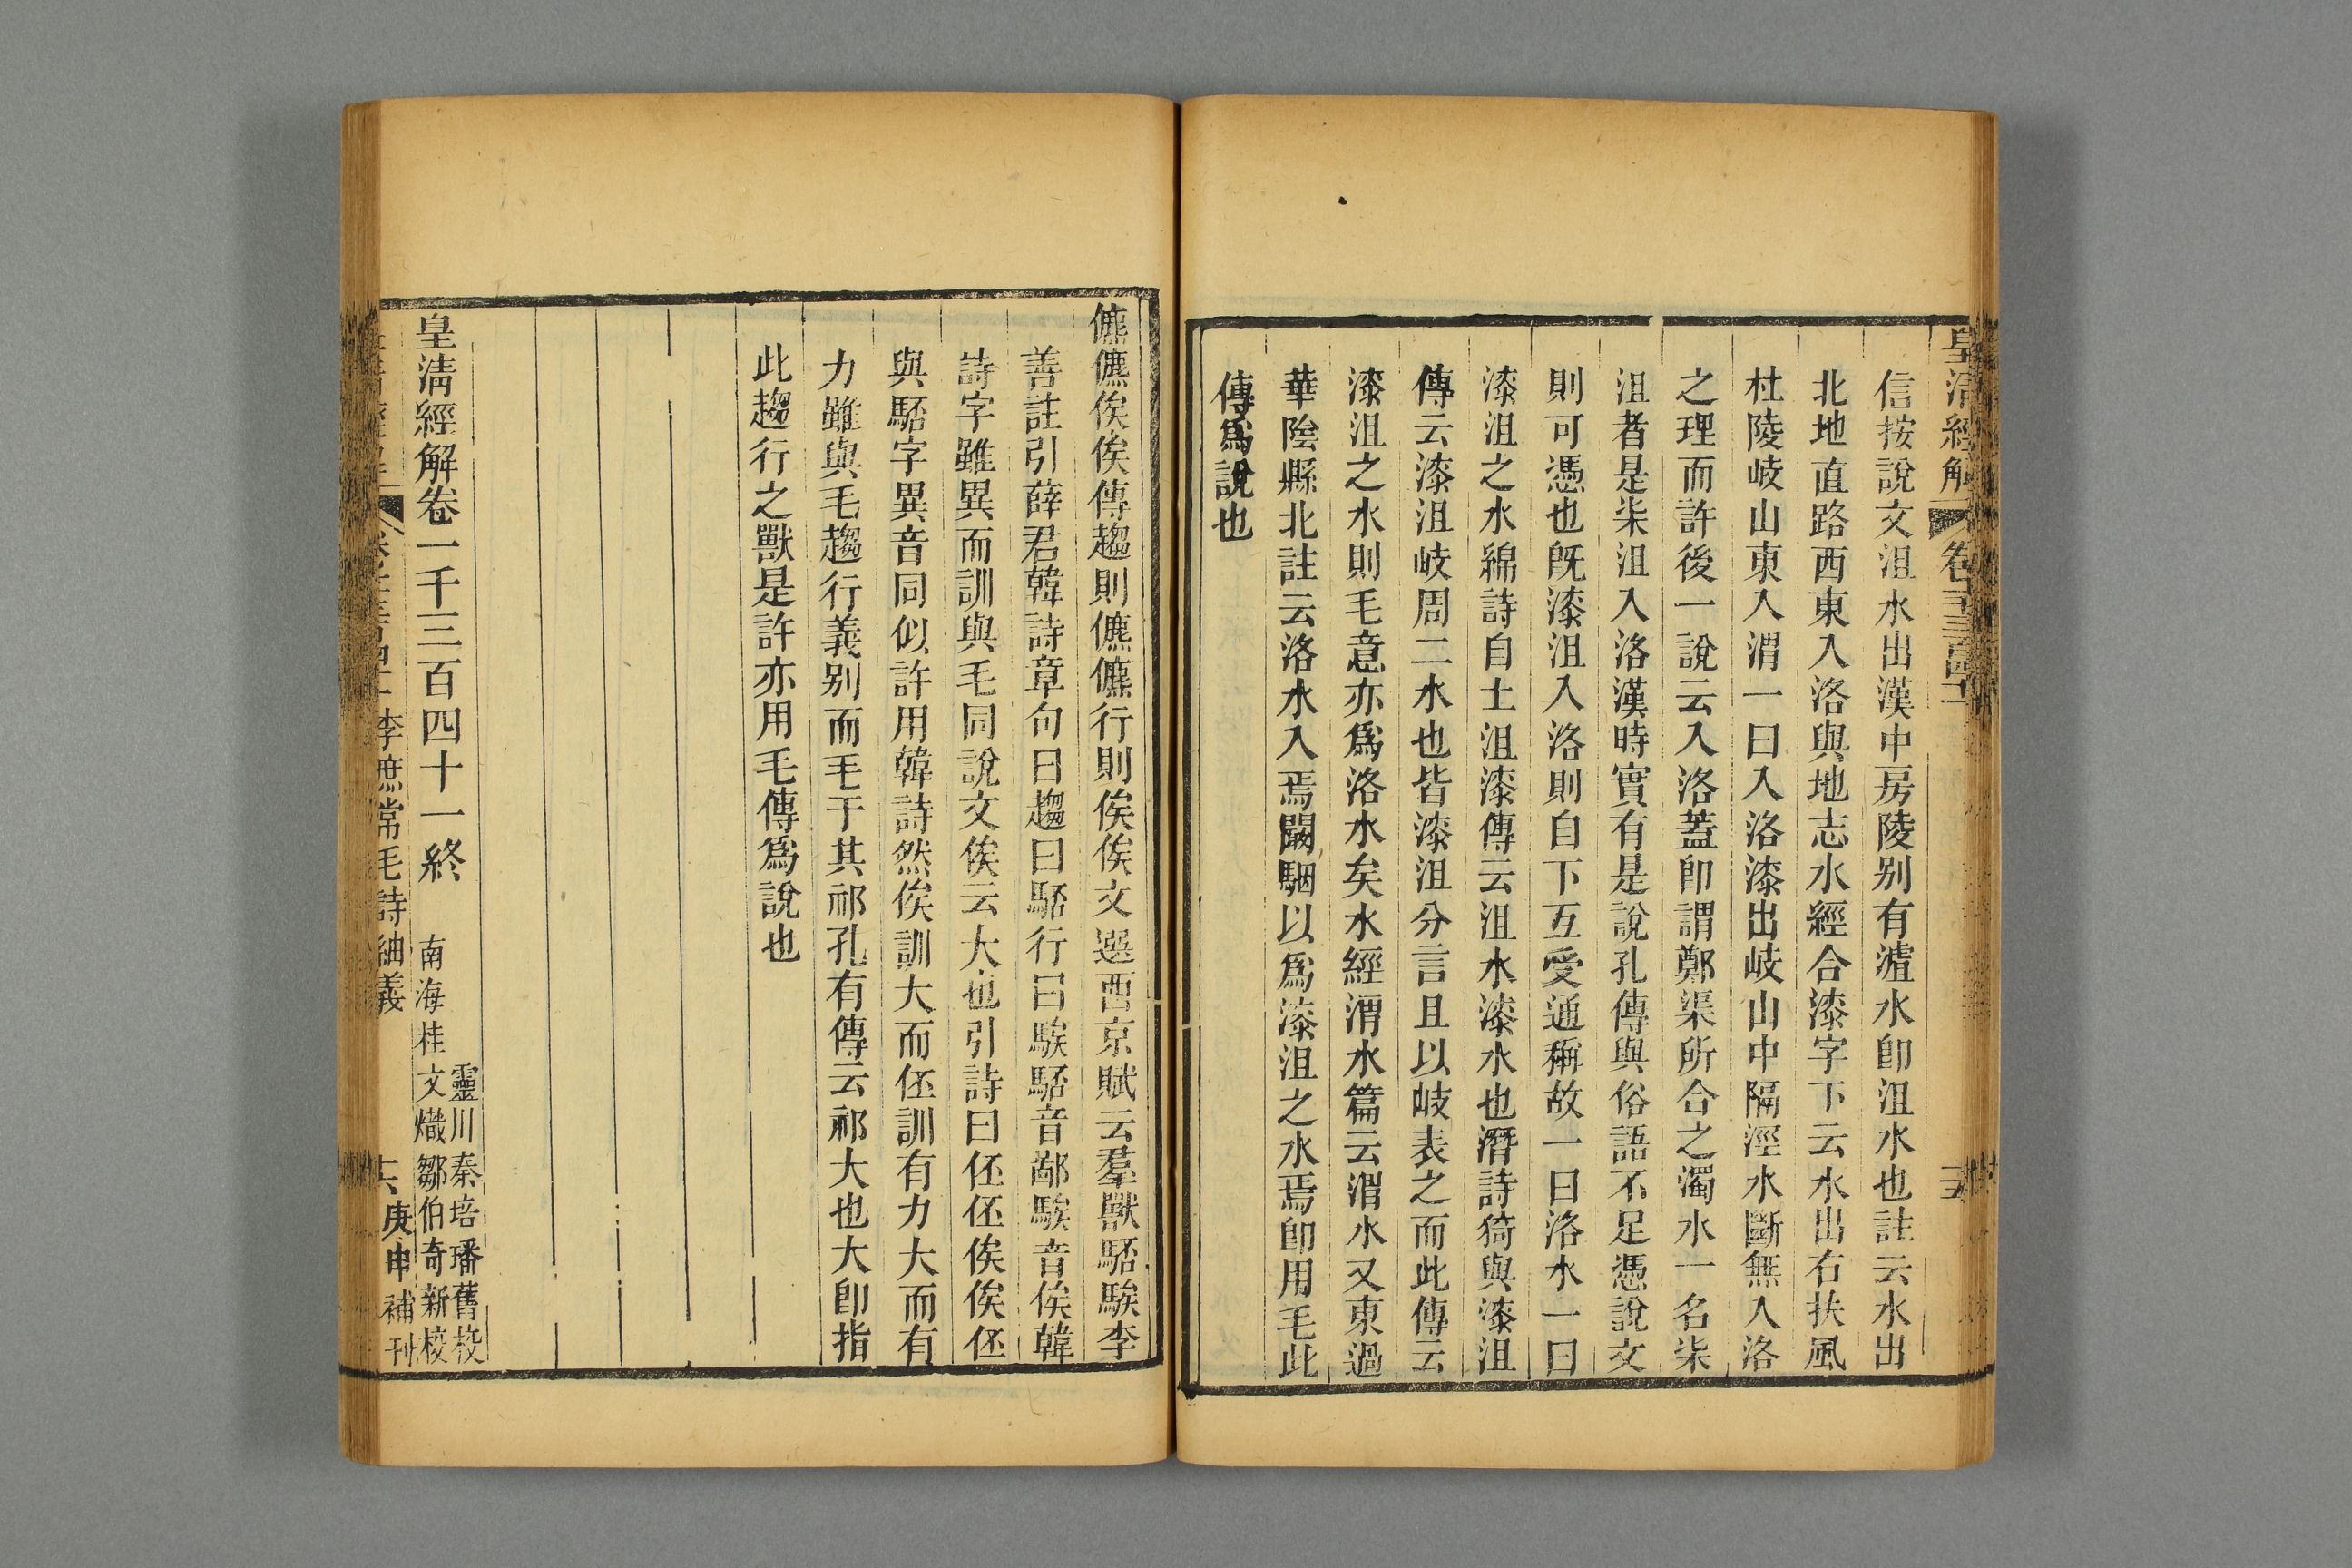 皇清經解
信按說文沮水出漢中房陵別有瀘水卽沮水也註云水出
北地直路西東入洛與地志水經合漆字下云水出右扶風
杜陵岐山東入渭一曰入洛漆出岐山中隔涇水斷無入洛
之理而許後一說云入洛蓋卽謂鄭渠所合之濁水一名柒
沮者是柒沮入洛漢時實有是說孔傳與俗語不足憑說文
則可憑也旣漆沮入洛則自下互受通稱故一曰洛水一曰
漆沮之水綿詩自土沮漆傳云沮水漆水也潛詩猗與漆沮
傳云漆沮岐周二水也皆漆沮分言且以岐表之而此傳云
漆沮之水則毛意亦爲洛水矣水經渭水篇云渭水又東過
華陰縣北註云洛水入焉闞駰以爲漆沮之水焉卽用毛此
傳爲說也
儦儦俟俟傳趨則儦儦行則俟俟文選西京賦云羣獸駓騃李
善註引薛君韓詩章句曰趨曰駓行曰騃駓音鄙騃音俟韓
詩字雖異而訓與毛同說文俟云大也引詩曰伾伾俟俟伾
與駓字異音同似許用韓詩然俟訓大而伾訓有力大而有
力雖與毛趨行義別而毛于其祁孔有傳云祁大也大卽指
此趨行之獸是許亦用毛傳爲說也
皇清經解卷一千三百四十一終
靈川秦培璠舊校
南海桂文熾鄒伯奇新校
李庶常毛詩紬義
庚申補刊